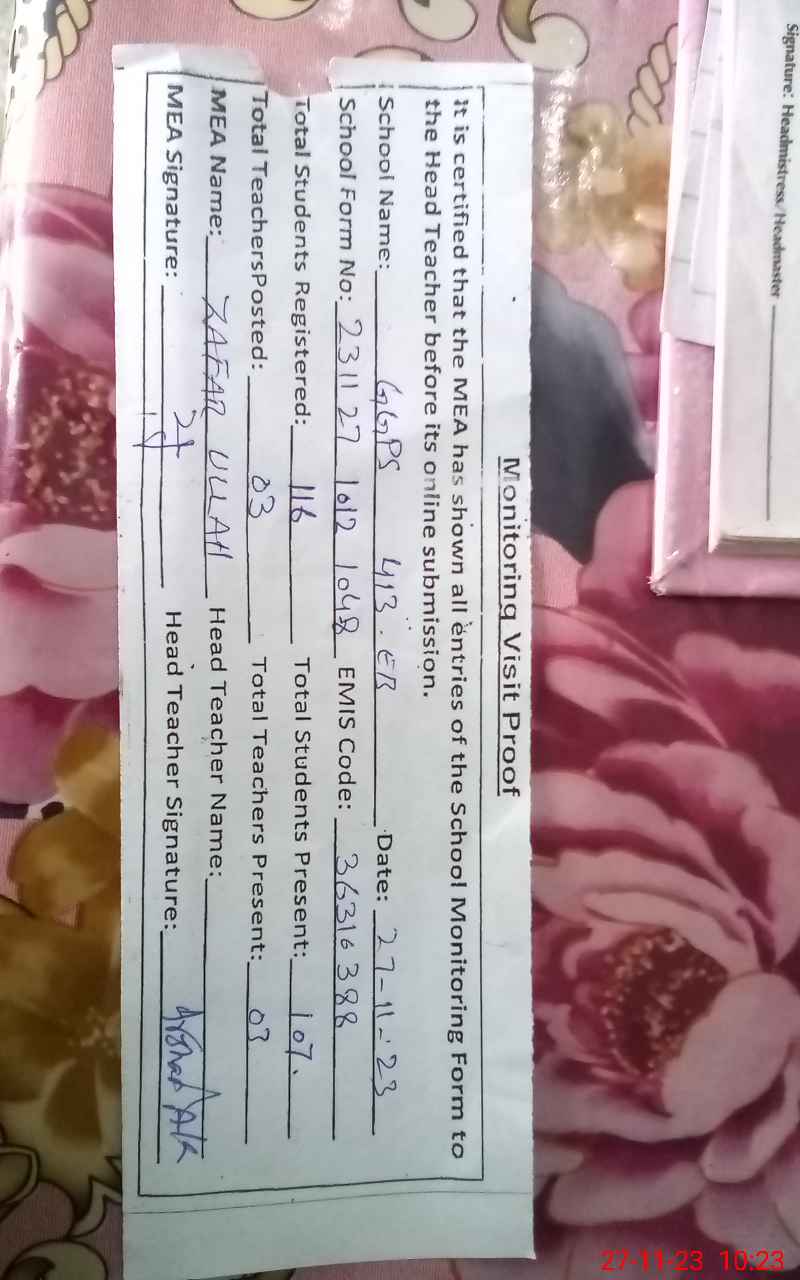 Monitoring Visit Proof
It is certified that the MEA has shown all entries of the School Monitoring Form to
the Head Teacher before its online submission.
School Name: GGPS 413.EB Date: 27-11-23
School Form No: 231127 1012 1048 EMIS Code: 36316388
Total Students Registered: 116 Total Students Present: 107.
Total TeachersPosted: 03 Total Teachers Present: 03
MEA Name: ZAFAR ULLAH Head Teacher Name:
MEA Signature: Head Teacher Signature:
Signature: Headmistress/Headmaster
27-11-23 10:23